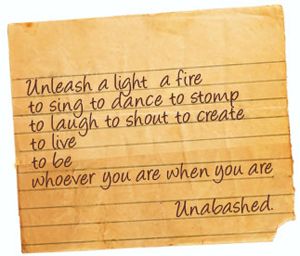 Unleash a light a fire
to sing to dance to stomp
to laugh to shout to create
to live
to be
whoever you are when you are
Unabashed.